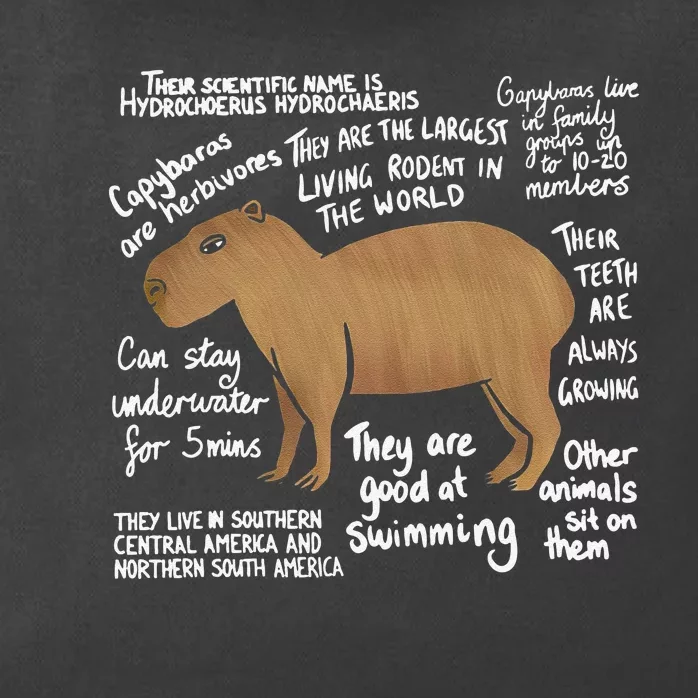 THEIR SCIENTIFIC NAME IS
HYDROCHOERUS HYDROCHAERIS
Capybaras
are herbivores
THEY ARE THE LARGEST
LIVING RODENT IN
THE WORLD
Capybaras live
in family
groups up
to 10-20
members
THEIR
TEETH
ARE
ALWAYS
GROWING
Can stay
underwater
for 5mins
They are
good at
swimming
Other
animals
sit on
them
THEY LIVE IN SOUTHERN
CENTRAL AMERICA AND
NORTHERN SOUTH AMERICA